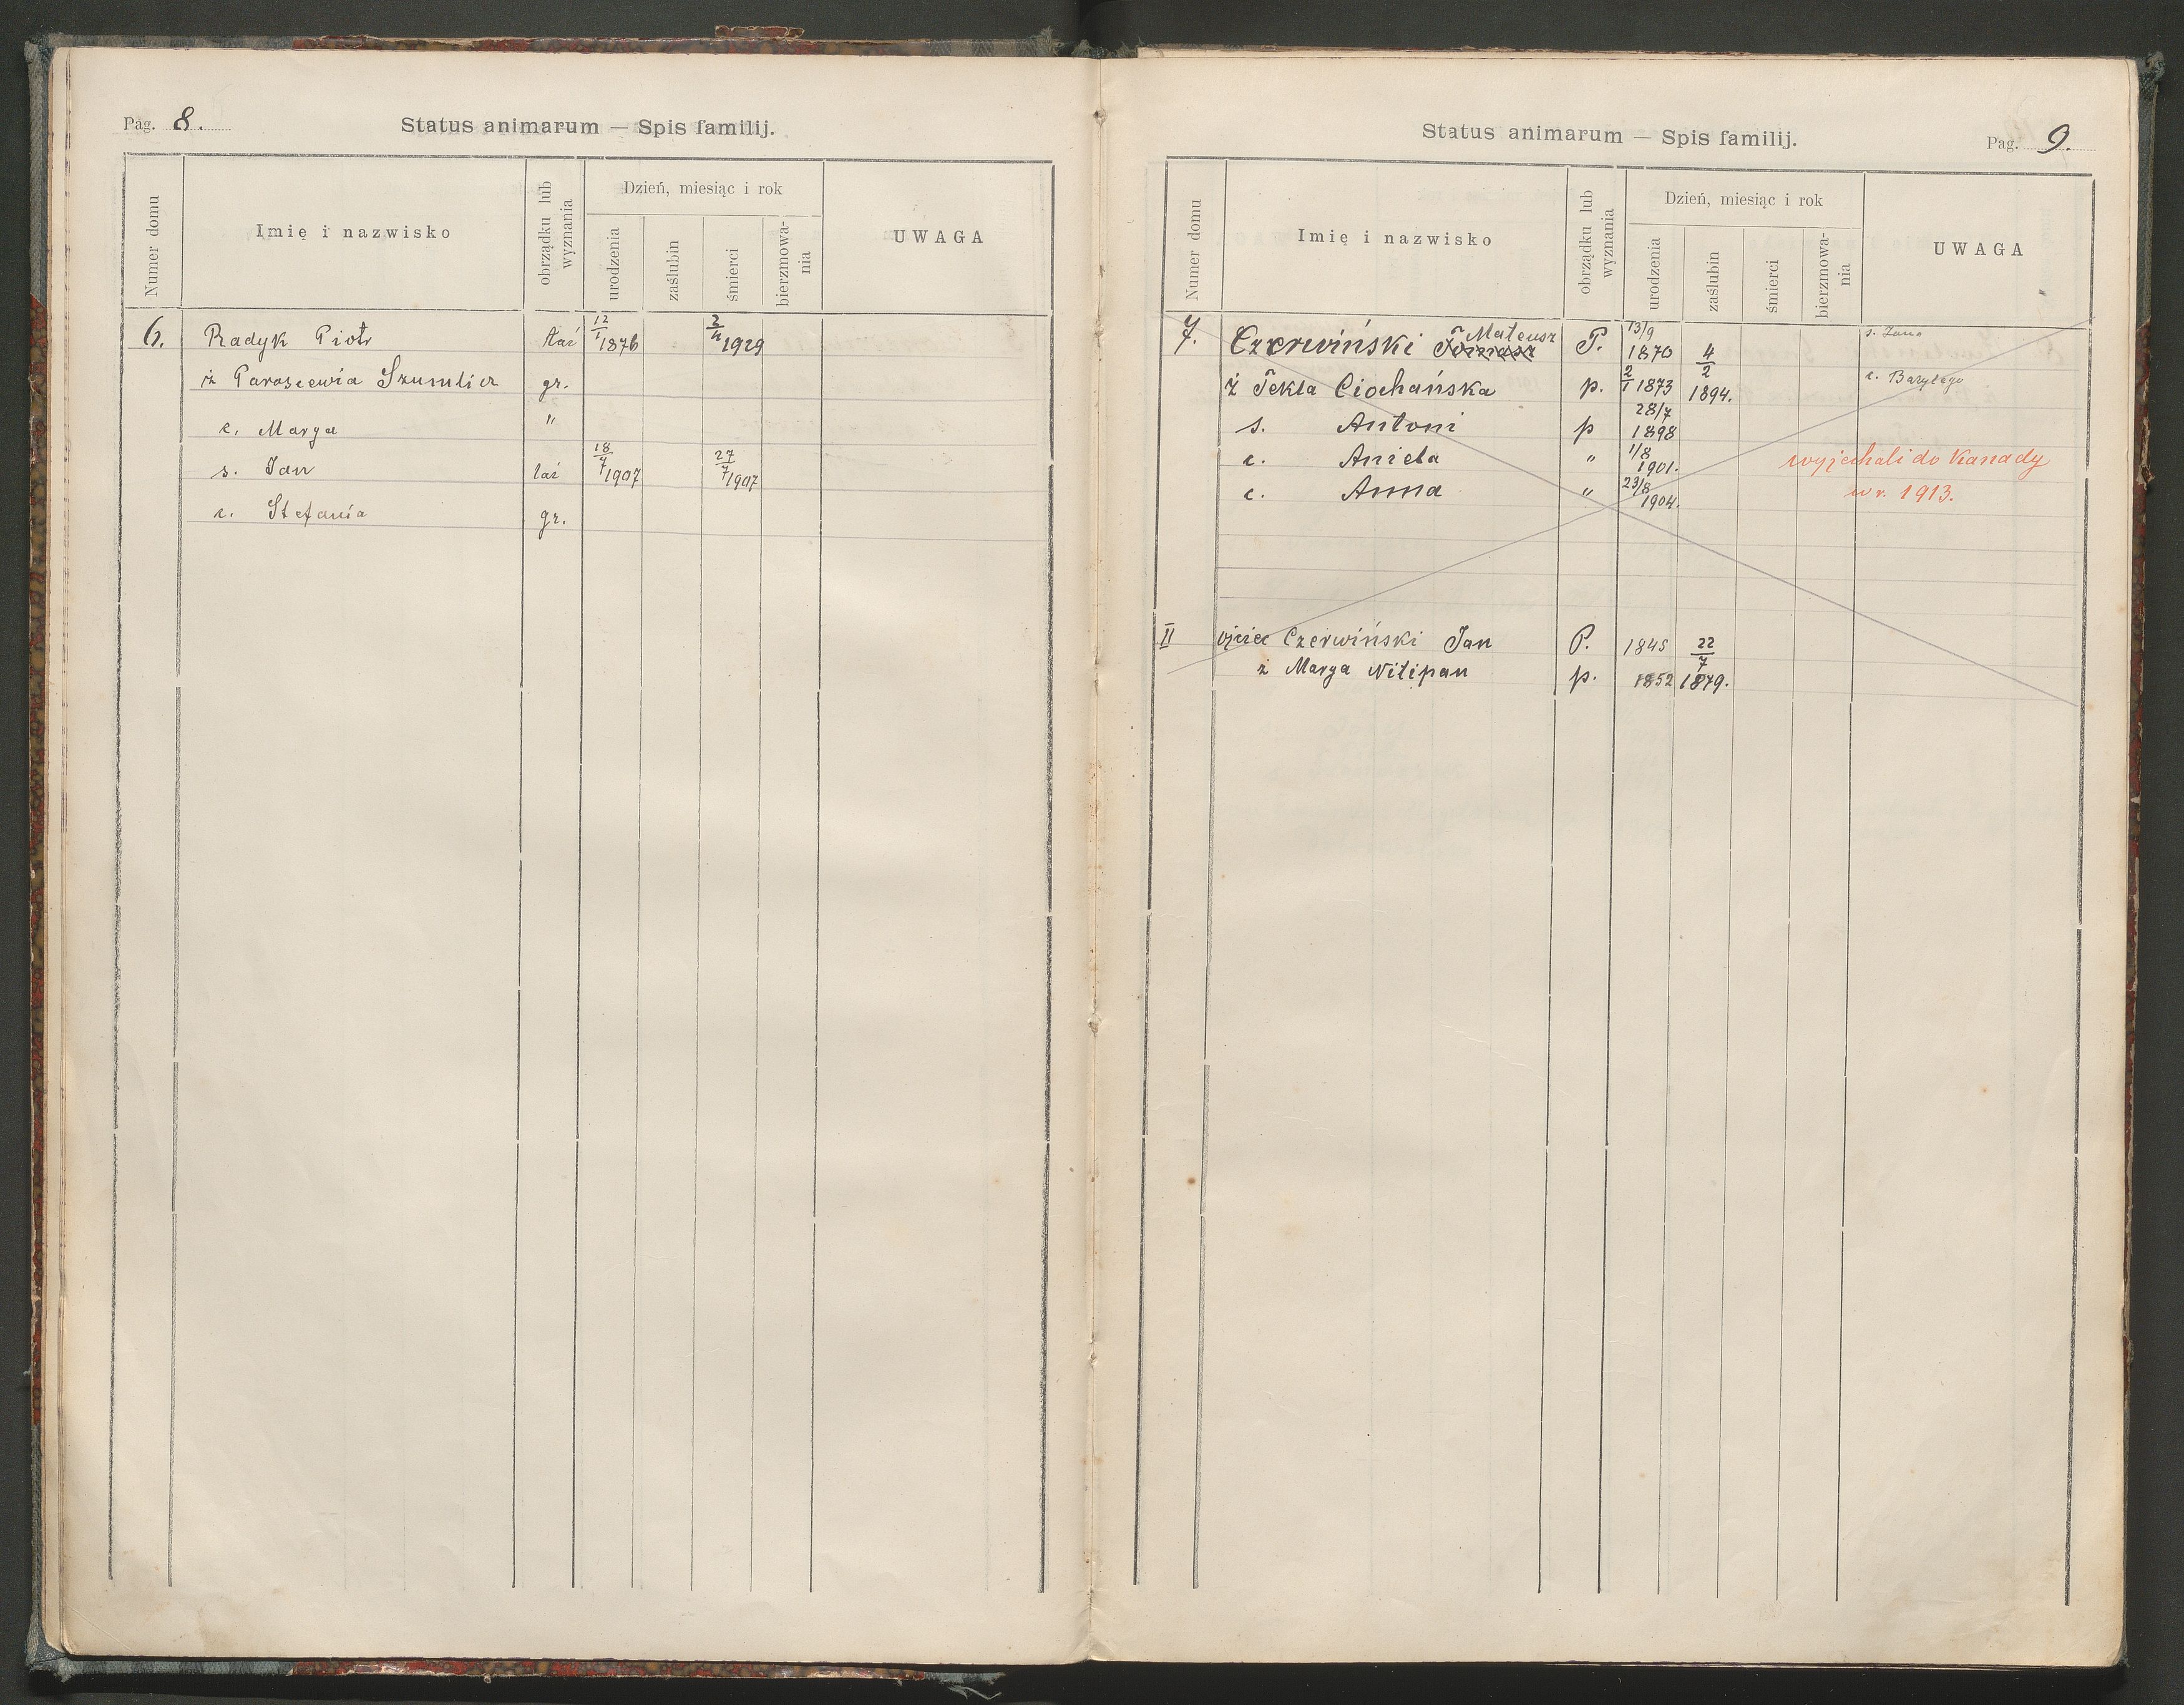 Pag. 8.
Status animarum — Spis familij.
Numer domu
Imię i nazwisko
obrządku lub wyznania
Dzień, miesiąc i rok
urodzenia
zaślubin
śmierci
bierzmowa-
nia
UWAGA
6. Radyk Piotr łać 12/I 1876 2/4 1929
ż Parascewia Szumlicz gr.
c. Marya "
s. Jan łać 18/7 1907 27/7 1907
c. Stefania gr.
Status animarum — Spis familij.
Pag. 9.
Numer domu
Imię i nazwisko
obrządku lub wyznania
Dzień, miesiąc i rok
urodzenia
zaślubin
śmierci
bierzmowa-
nia
UWAGA
7. Czerwiński Tomasz Mateusz P. 13/9 1870 4/2 s. Jana
ż Tekla Ciochańska p. 2/1 1873 1894. c.
s. Antoni p 28/7 1898
c. Aniela " 1/8 1901. wyjechali do Kanady
c. Anna " 23/8 1904. w r. 1913.
II ojciec Czerwiński Jan P. 1845 22/7
ż Marya Nitipan p. 1852 1879.